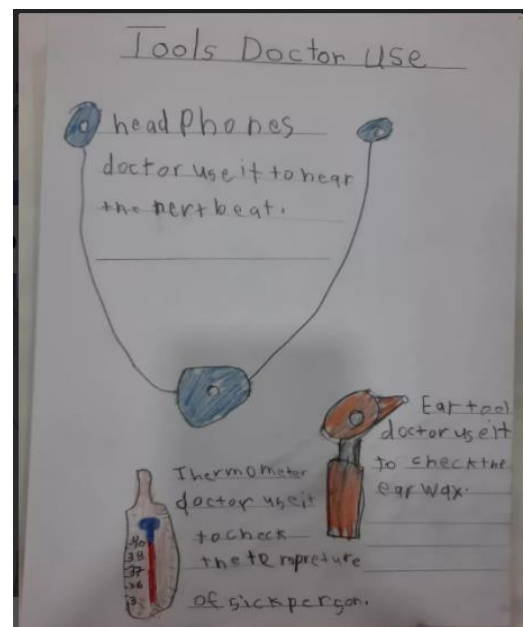 Tools Doctor use
headphones
doctor use it to hear
the hert beat.
Ear tool
doctor use it
to check the
ear wax.
Thermometer
doctor use it
to check
the tempreture
of sick person.
40
38
37
36
3